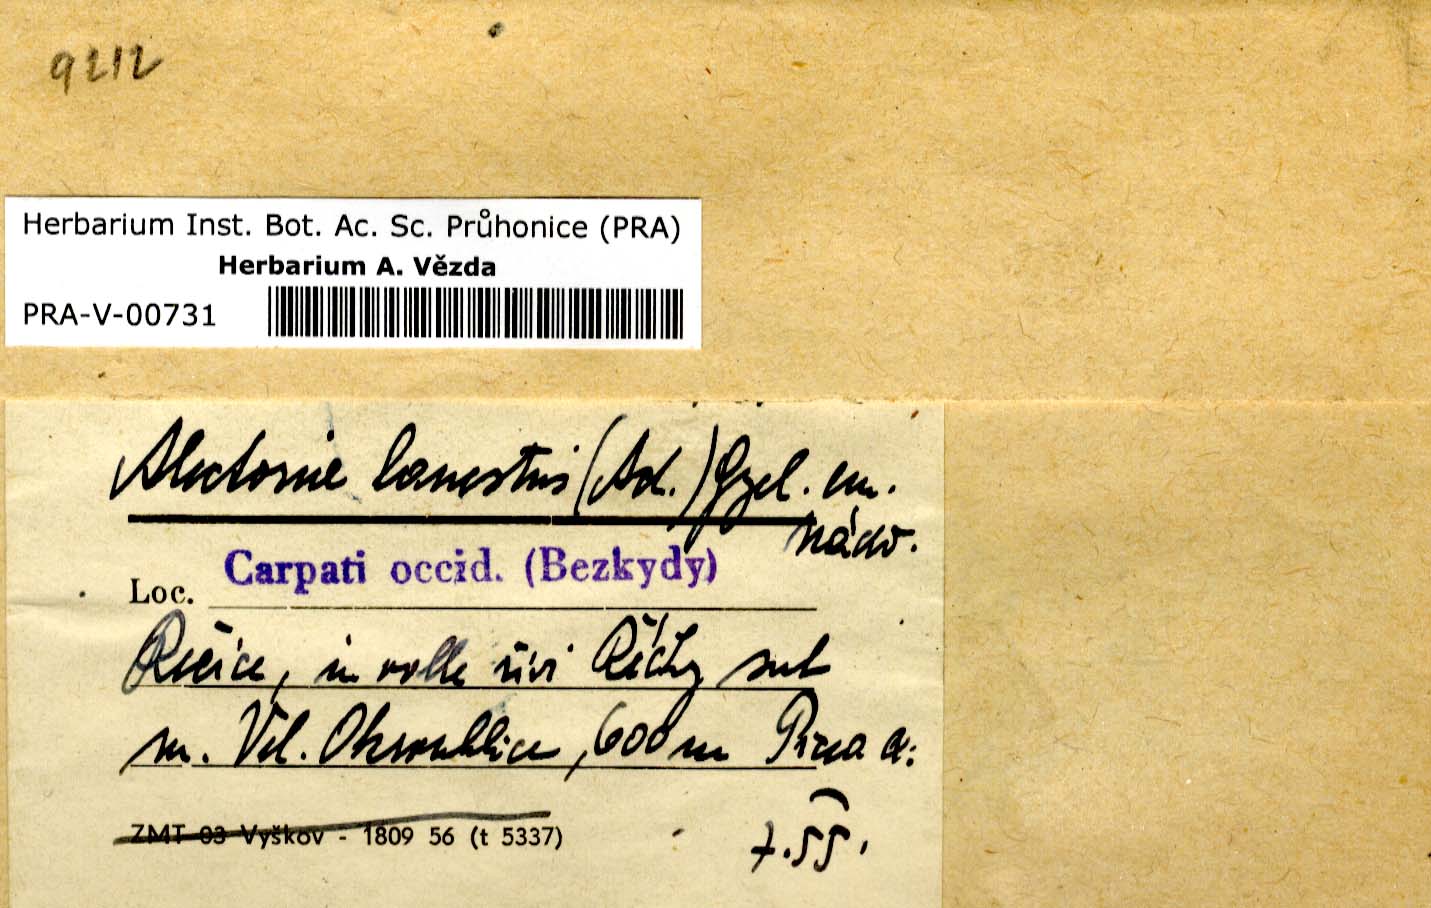 9212
Herbarium Inst. Bot. Ac. Sc. Průhonice (PRA)
Herbarium A. Vězda
PRA-V-00731
Alectoria lanestris (Ach.) Gyel. em.
Nádv.
Carpati occid. (Bezkydy)
Loc.
Řečice, in valle rivi Řečky sub
m. Vel. Okrouhlice, 600 m Picea
ZMT 03 Vyškov - 1809 56 (t 5337)
7.55.